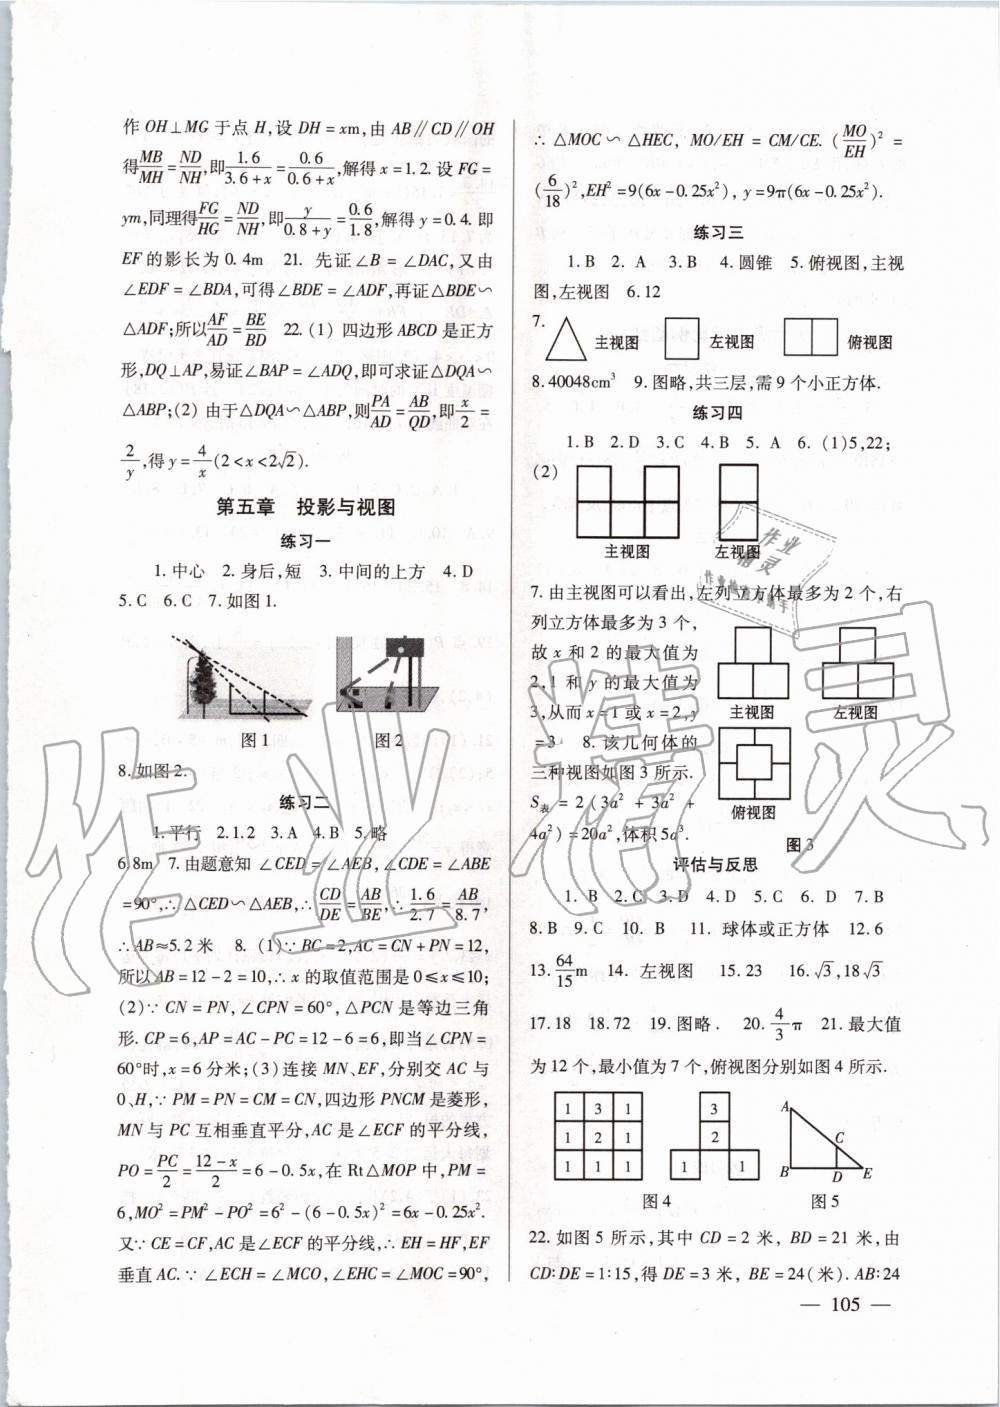 作OH⊥MG于点H,设DH=xm,由AB∥CD∥OH
得MB/MH=ND/NH,即1.6/3.6+x=0.6/0.6+x,解得x=1.2.设FG=
ym,同理得FG/HG=ND/NH,即y/0.8+y=0.6/1.8,解得y=0.4.即
EF的影长为0.4m 21. 先证∠B=∠DAC,又由
∠EDF=∠BDA,可得∠BDE=∠ADF,再证△BDE∽
△ADF;所以AF/AD=BE/BD 22.(1)四边形ABCD是正方
形,DQ⊥AP,易证∠BAP=∠ADQ,即可求证△DQA∽
△ABP;(2)由于△DQA∽△ABP,则PA/AD=AB/QD,即x/2=
2/y,得y=4/x(2<x<2√2).
第五章 投影与视图
练习一
1.中心 2.身后,短 3.中间的上方 4.D
5.C 6.C 7.如图1.
图1 图2
8.如图2.
练习二
1.平行 2.1.2 3.A 4.B 5.略
6.8m 7.由题意知∠CED=∠AEB,∠CDE=∠ABE
=90°,∴△CED∽△AEB,∴CD/DE=AB/BE,∴1.6/2.7=AB/8.7,
∴AB≈5.2米 8.(1)∵BC=2,AC=CN+PN=12,
所以AB=12-2=10,∴x的取值范围是0≤x≤10;
(2)∵CN=PN,∠CPN=60°,△PCN是等边三角
形.CP=6,AP=AC-PC=12-6=6,即当∠CPN=
60°时,x=6分米;(3)连接MN、EF,分别交AC与
O、H,∵PM=PN=CM=CN,四边形PNCM是菱形,
MN与PC互相垂直平分,AC是∠ECF的平分线,
PO=PC/2=12-x/2=6-0.5x,在Rt△MOP中,PM=
6,MO²=PM²-PO²=6²-(6-0.5x)²=6x-0.25x².
又∵CE=CF,AC是∠ECF的平分线,∴EH=HF,EF
垂直AC.∵∠ECH=∠MCO,∠EHC=∠MOC=90°,
∴△MOC∽△HEC, MO/EH=CM/CE.(MO/EH)²=
(6/18)²,EH²=9(6x-0.25x²), y=9π(6x-0.25x²).
练习三
1.B 2.A 3.B 4.圆锥 5.俯视图,主视
图,左视图 6.12
7. 主视图 左视图 俯视图
8.40048cm³ 9.图略,共三层,需9个小正方体.
练习四
1.B 2.D 3.C 4.B 5.A 6.(1)5,22;
(2)
主视图 左视图
7.由主视图可以看出,左列立方体最多为2个,右
列立方体最多为3个,
故x和2的最大值为
2,1和y的最大值为
3,从而x=1或x=2,y
=3 8.该几何体的
三种视图如图3所示.
S表=2(3a²+3a²+
4a²)=20a²,体积5a³.
主视图 左视图
俯视图
图3
评估与反思
1.B 2.C 3.D 4.D 5.C 6.D 7.B
8.B 9.C 10.B 11.球体或正方体 12.6
13.64/15m 14.左视图 15.23 16.√3,18√3
17.18 18.72 19.图略. 20.4/3π 21.最大值
为12个,最小值为7个,俯视图分别如图4所示.
1 3 1
1 2 1
1 1 1
3
2
1 1
A
C
B D E
图4 图5
22.如图5所示,其中CD=2米,BD=21米,由
CD:DE=1:15,得DE=3米,BE=24(米).AB:24
— 105 —
作业精灵
作业精灵